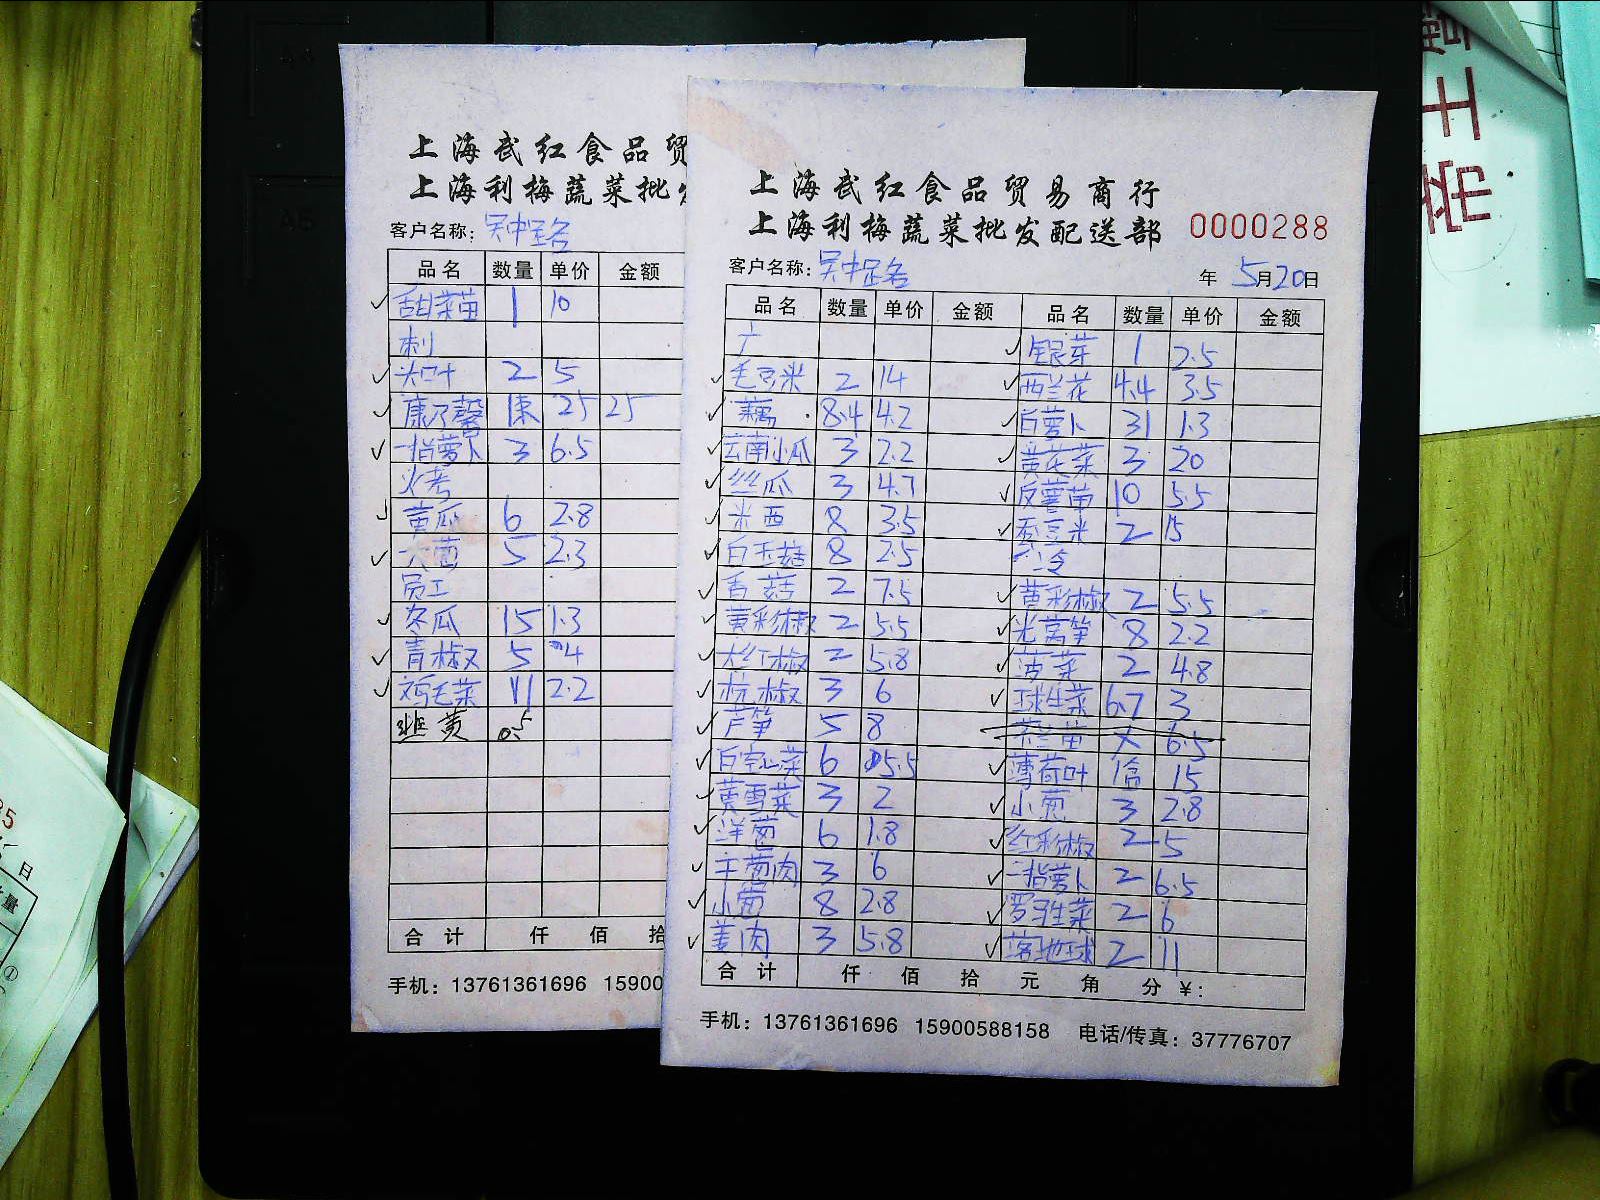 上海武红食品贸
上海利梅蔬菜批发
客户名称: 吴中
品名 数量 单价 金额
甜菜苗 1 10
刺
2 5
康乃馨 1束 25 25
一指萝卜 3 6.5
火考
黄瓜 6 2.8
大葱 5 2.3
员工
冬瓜 15 1.3
青椒 5 4
鸡毛菜 11 2.2
韭黄 0.5
合计 仟 佰 拾
手机: 13761361696 15900
上海武红食品贸易商行
上海利梅蔬菜批发配送部 0000288
客户名称: 吴中 年 5月20日
品名 数量 单价 金额 品名 数量 单价 金额
银芽 1 2.5
毛豆米 2 14 西兰花 4.4 3.5
藕 8.4 4.2 白萝卜 31 1.3
云南小瓜 3 2.2 黄花菜 3 20
丝瓜 3 4.7 苗 10 5.5
米西 8 3.5 蚕豆米 2 15
白玉菇 8 2.5 冷
香菇 2 7.5 黄彩椒 2 5.5
黄彩椒 2 5.5 光莴笋 8 2.2
大红椒 2 5.8 菠菜 2 4.8
杭椒 3 6 球生菜 6.7 3
芦笋 5 8 苗 6.5
白空心菜 6 5.5 薄荷叶 1合 15
黄雪菜 3 2 小葱 3 2.8
洋葱 6 1.8 红彩椒 2 5
干葱肉 3 6 一指萝卜 2 6.5
小葱 8 2.8 罗马生菜 2 6
姜肉 3 5.8 落地球 2 11
合计 仟 佰 拾 元 角 分 ¥:
手机: 13761361696 15900588158 电话/传真: 37776707